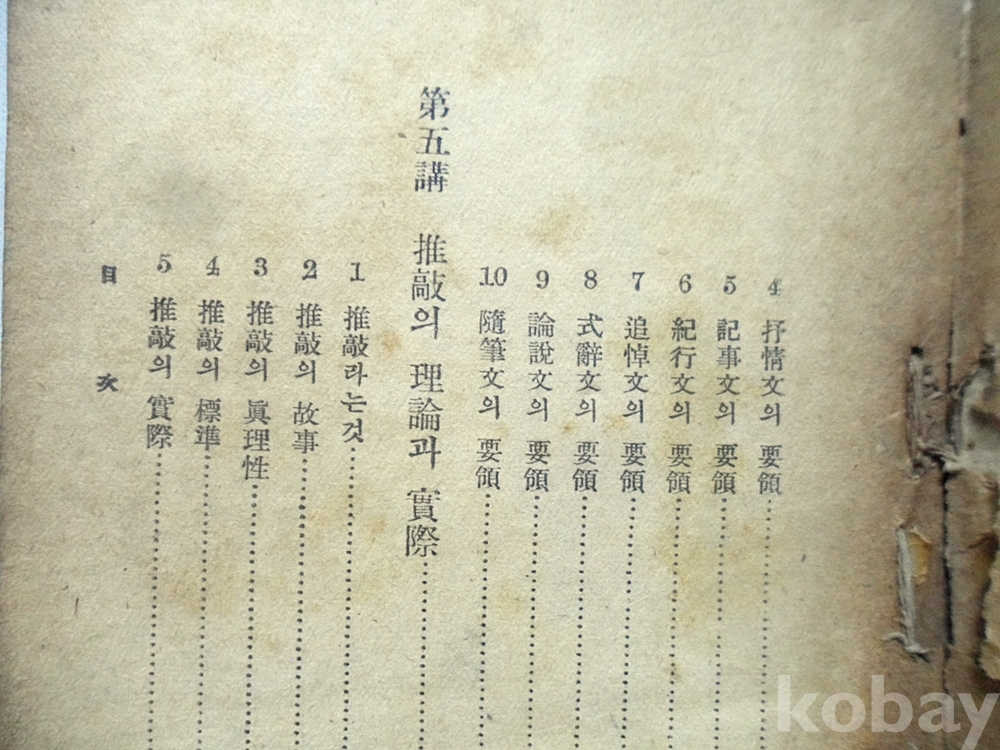 4 抒情文의 要領
5 記事文의 要領
6 紀行文의 要領
7 追悼文의 要領
8 式辭文의 要領
9 論說文의 要領
10 隨筆文의 要領
第五講 推敲의 理論과 實際
1 推敲라는것
2 推敲의 故事
3 推敲의 眞理性
4 推敲의 標準
5 推敲의 實際
目次
kobay